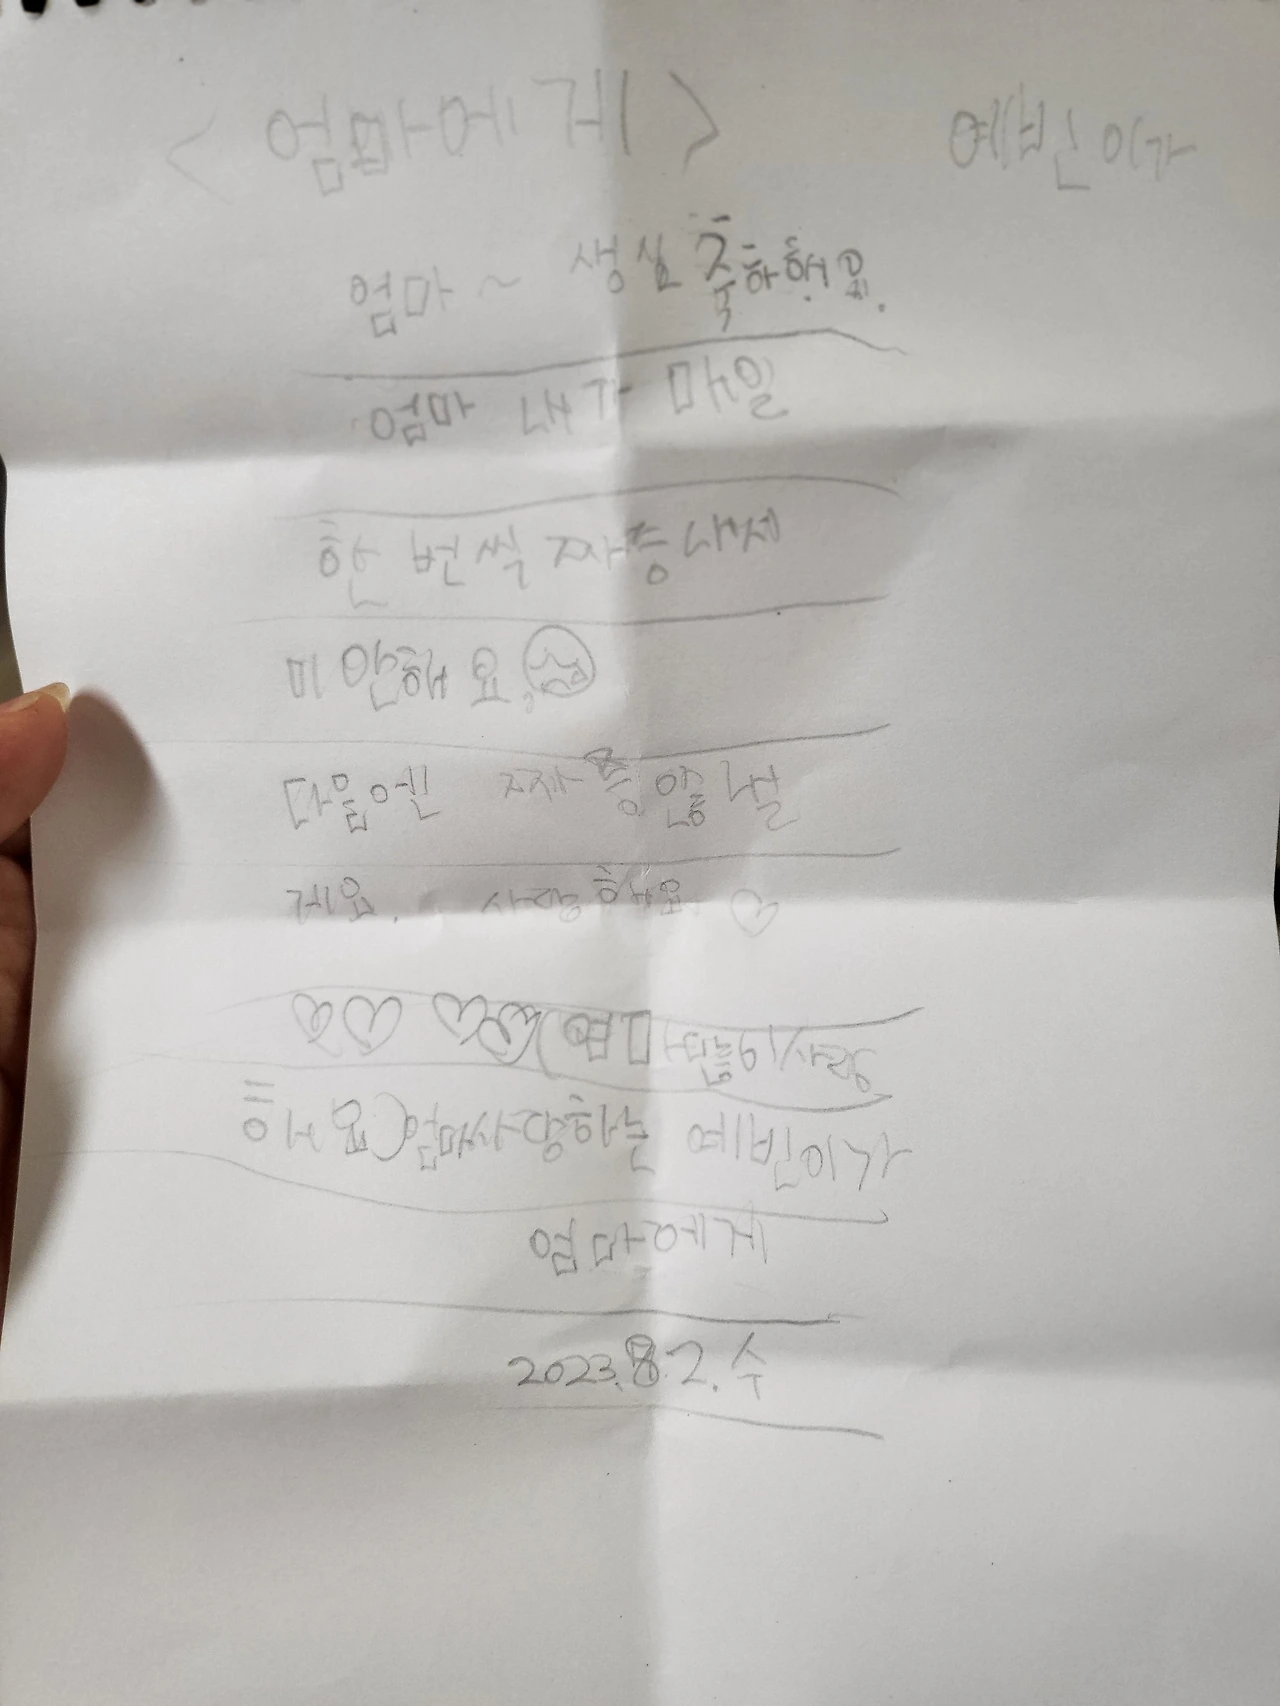 <엄마에게> 예빈이가
엄마~ 생실 축하해요.
엄마 내가 매일
한 번씩 짜증나제
미안해요.
다음엔 짜증 안낼
게요. 사랑해요
엄마
예빈이가
엄마에게
2023.8.2.수